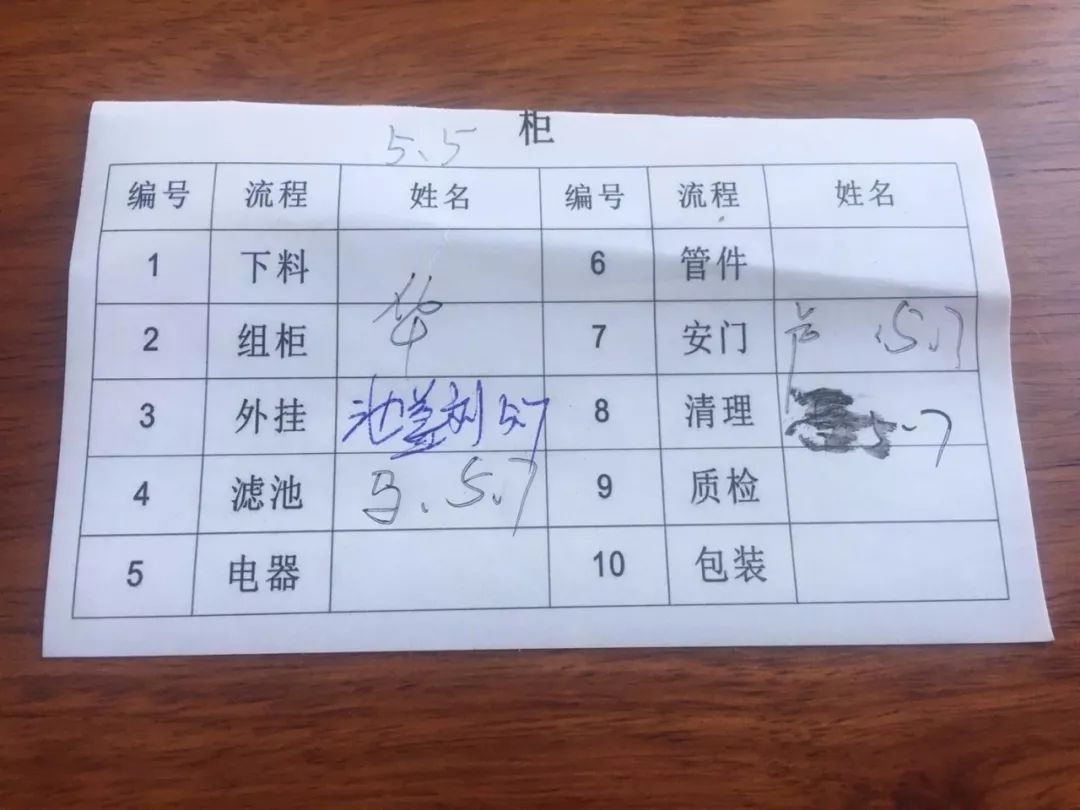 柜
5.5
编号 流程 姓名 编号 流程 姓名
1 下料 6 管件
2 组柜 华 7 安门 卢 .5.7
3 外挂 池 刘 5.7 8 清理 5.7
4 滤池 马.5.7 9 质检
5 电器 10 包装